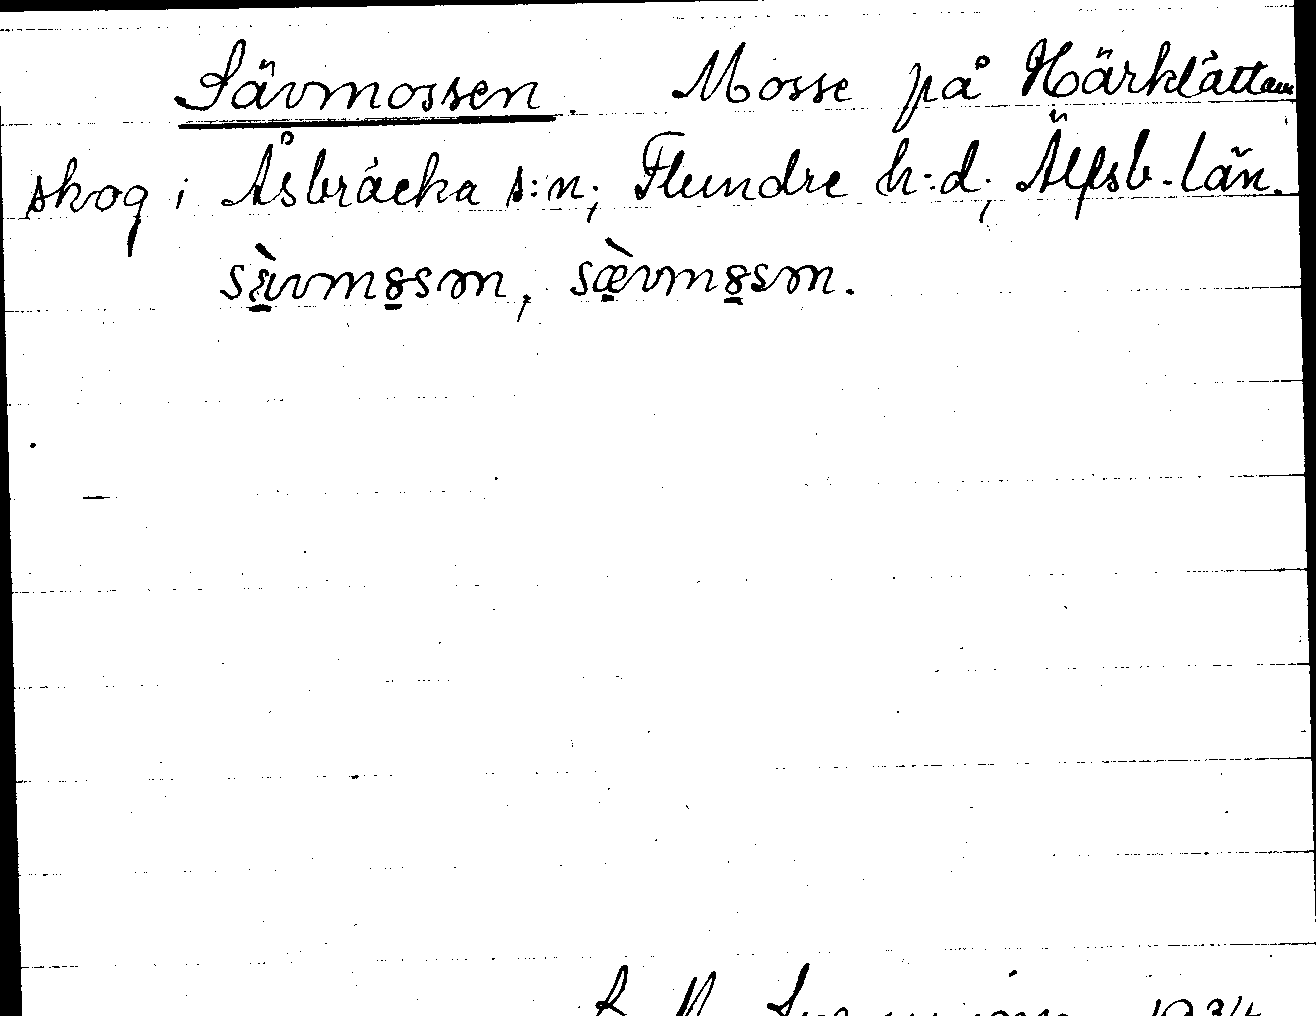 Sävmossen. Mosse på Härklättau
skog i Åsbräcka s:n; Flundre h:d; Älfsb. län.
sä̀vmos̥sm̥, sæ̀vmosm̥.
1934